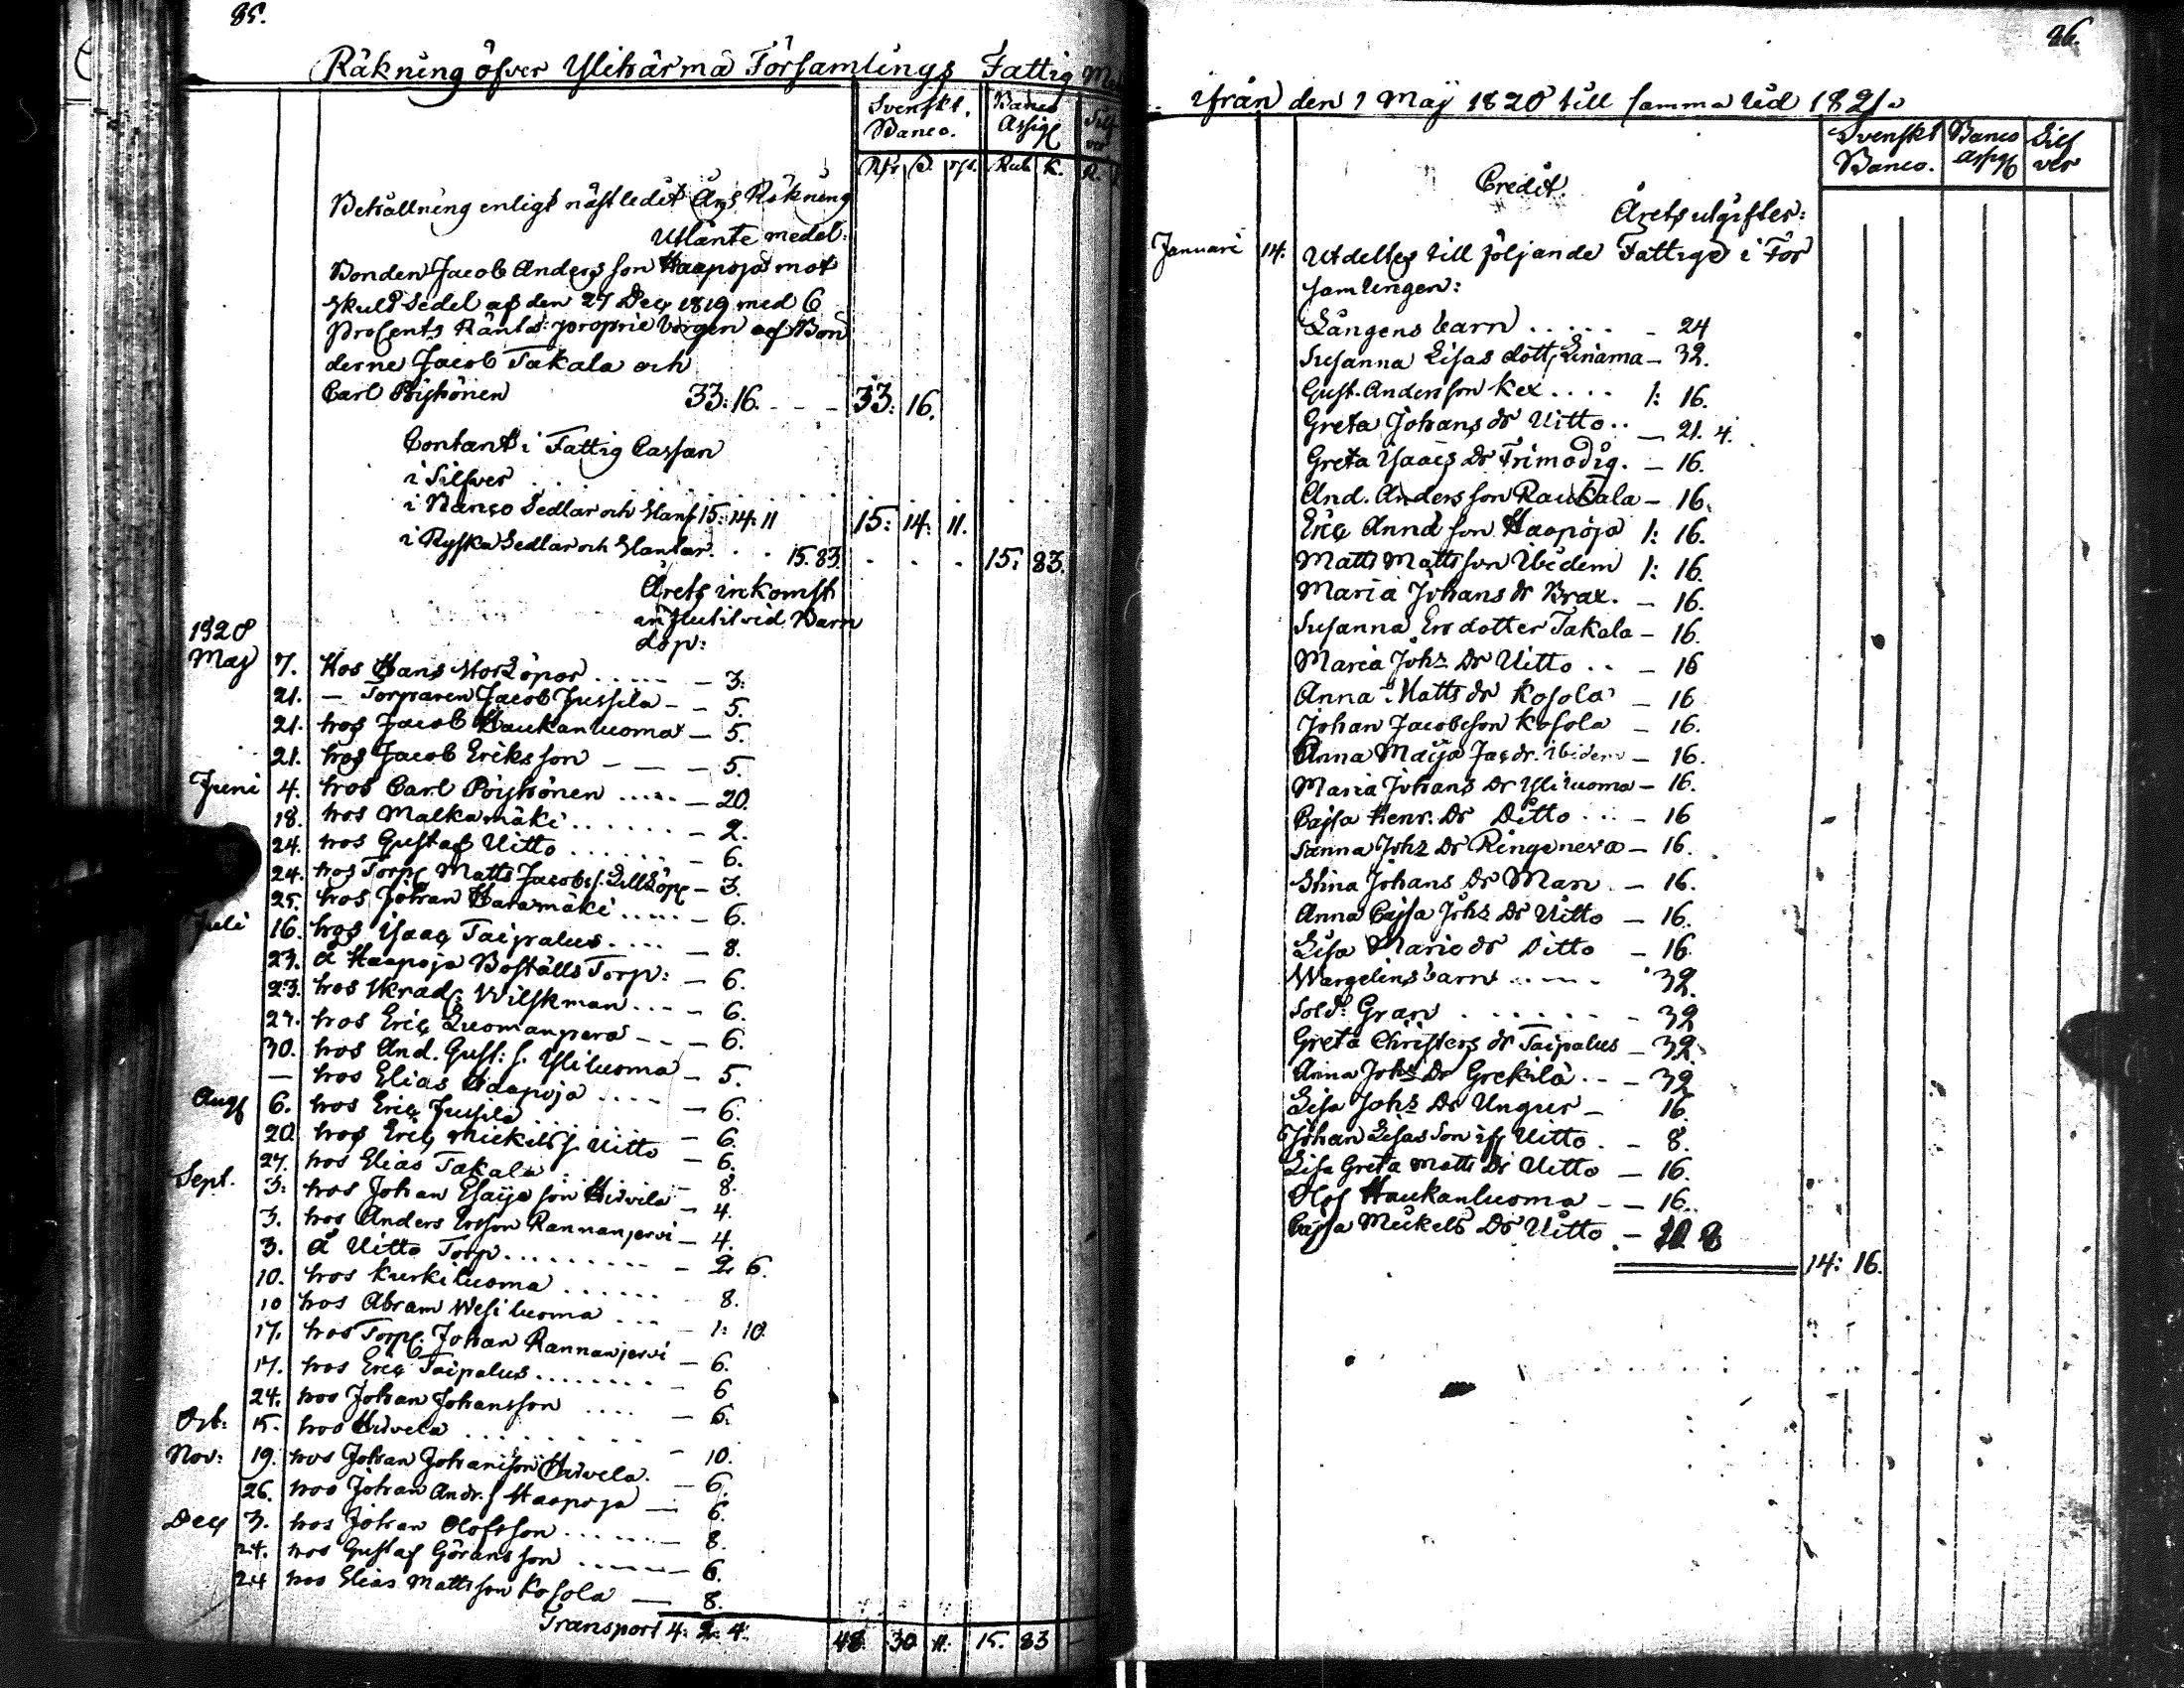 85.
Räkning öfver Ylihärmä Församlings Fattig
Svenskt. Banco
Banco. Assig Silf
ver
Rdr s. rst. Rub K. R.
Behållning enligt nästledit Års Räkning
Utlänte medel:
Bonden Jacob Anders son Haapoja mot
skuld Sedel af den 27 Dec 1819 med 6
ProCents Ränta: proprie borgen af Bon
derne Jacob Takala och
Carl Pöyhönen 33: 16. - - - 33: 16.
Contant i Fattig Cassan
i Silfver
i Banco Sedlar och Slant 15: 14: 11 15: 14: 11.
i Ryska Sedlar och Slantar. . . 15. 83. 15: 83.
Årets inkomst
influtit vid Barn
dop:
1820
Maj 7. Hos Hans Storlöpor ..... - 3:
21. - Torparen Jacob Jussila - - 5.
21. hos Jacob Haukanluoma - 5.
21. hos Jacob Eriksson - - - 5.
Juni 4. hos Carl Pöyhönen ..... - 20.
18. hos Malkamäki ...... - 2.
24. hos Gustaf Uitto ...... - 6.
24. hos Torp Matts Jacobs s. Lillöp - 3.
25. hos Johan Haramäki ..... - 6.
Juli 16. hos Isaac Taipalus .... - 8.
23. å Haapoja Boställs Torp: - 6.
23. hos Skrad: Wilskman ... - 6.
27. hos Eric Luomanpera - - - 6.
30. hos And. Gust: s. Yliluoma - 5.
- hos Elias Haapoja .... - 6.
Aug 6. hos Eric Jussila ... - 6.
20. hos Eric Mickels s. Uitto - 6.
27. hos Elias Takala . . . - 8.
Sept. 3: hos Johan Esaija son Hirvila - 4.
3. hos Anders Ersson Rannanjervi - 4.
3. å Uitto Torp ......... - 2 6.
10. hos Kurkiluoma ...... 8.
10 hos Abram Wesiluoma ... - 1: 10.
17. hos Torp: Johan Rannanjervi - 6.
17. hos Eric Taipalus ........ - 6
24. hos Johan Johansson .... - 6.
Oct: 15. hos Hirvela ........ - 10.
Nov: 19. hos Johan Johansson Hirvela. - 6.
26. hos Johan Andr. s Haapoja - 6.
Dec 3. hos Johan Olofsson ...... - 8.
24. hos Gustaf Göransson ..... - 6.
24 hos Elias Mattsson Kosola - 8.
Transport 4: 2: 4. 48 30 11: 15. 83 -
86.
ifrån den 1 Maij 1820 till samma tid 1821.
Svenskt Banco Silf
Banco. assig ver
Credit.
Årets utgifter:
Januari 14. Utdeltes till följande Fattige i För
samlingen:
Långens barn ..... - 24
Susanna Lisas dott Linama - 32.
Gust. Andersson Kex .... 1: 16.
Greta Johans dr Uitto .. - 21. 4.
Greta Isaacs Dr Frimodig. - 16.
And. Andersson Raukala - 16.
Eric Annd son Haapoja 1: 16.
Matts Mattsson Ibidem 1: 16.
Maria Johans dr Brax. - 16.
Susanna Ers dotter Takala - 16.
Maria Johs Dr Uitto .. - 16
Anna Matts dr Kosola - 16
Johan Jacobsson Kosola - 16.
Anna Maija Jac dr. Ibidem - 16.
Maria Johans Dr Yliluoma - 16.
Cajsa Henr. Dr Ditto ... - 16
Sanna Johs Dr Ringeneva - 16.
Stina Johans Dr Man. - 16.
Anna Cajsa Johs Dr Uitto - 16.
Lisa Maria dr Ditto - 16.
Wargelins barn ..... 32.
Sold: Gran ...... - 32
Greta Christers dr Taipalus - 32.
Anna Johs Dr Grekilä .. - 32
Lisa Johs Dr Ungur - 16.
Johan Lisas Son if Uitto. - 8.
Lisa Greta Matts Dr Uitto - 16.
Olof Haukanluoma - - 16.
Cajsa Mickels Dr Uitto - 20 8
14: 16.